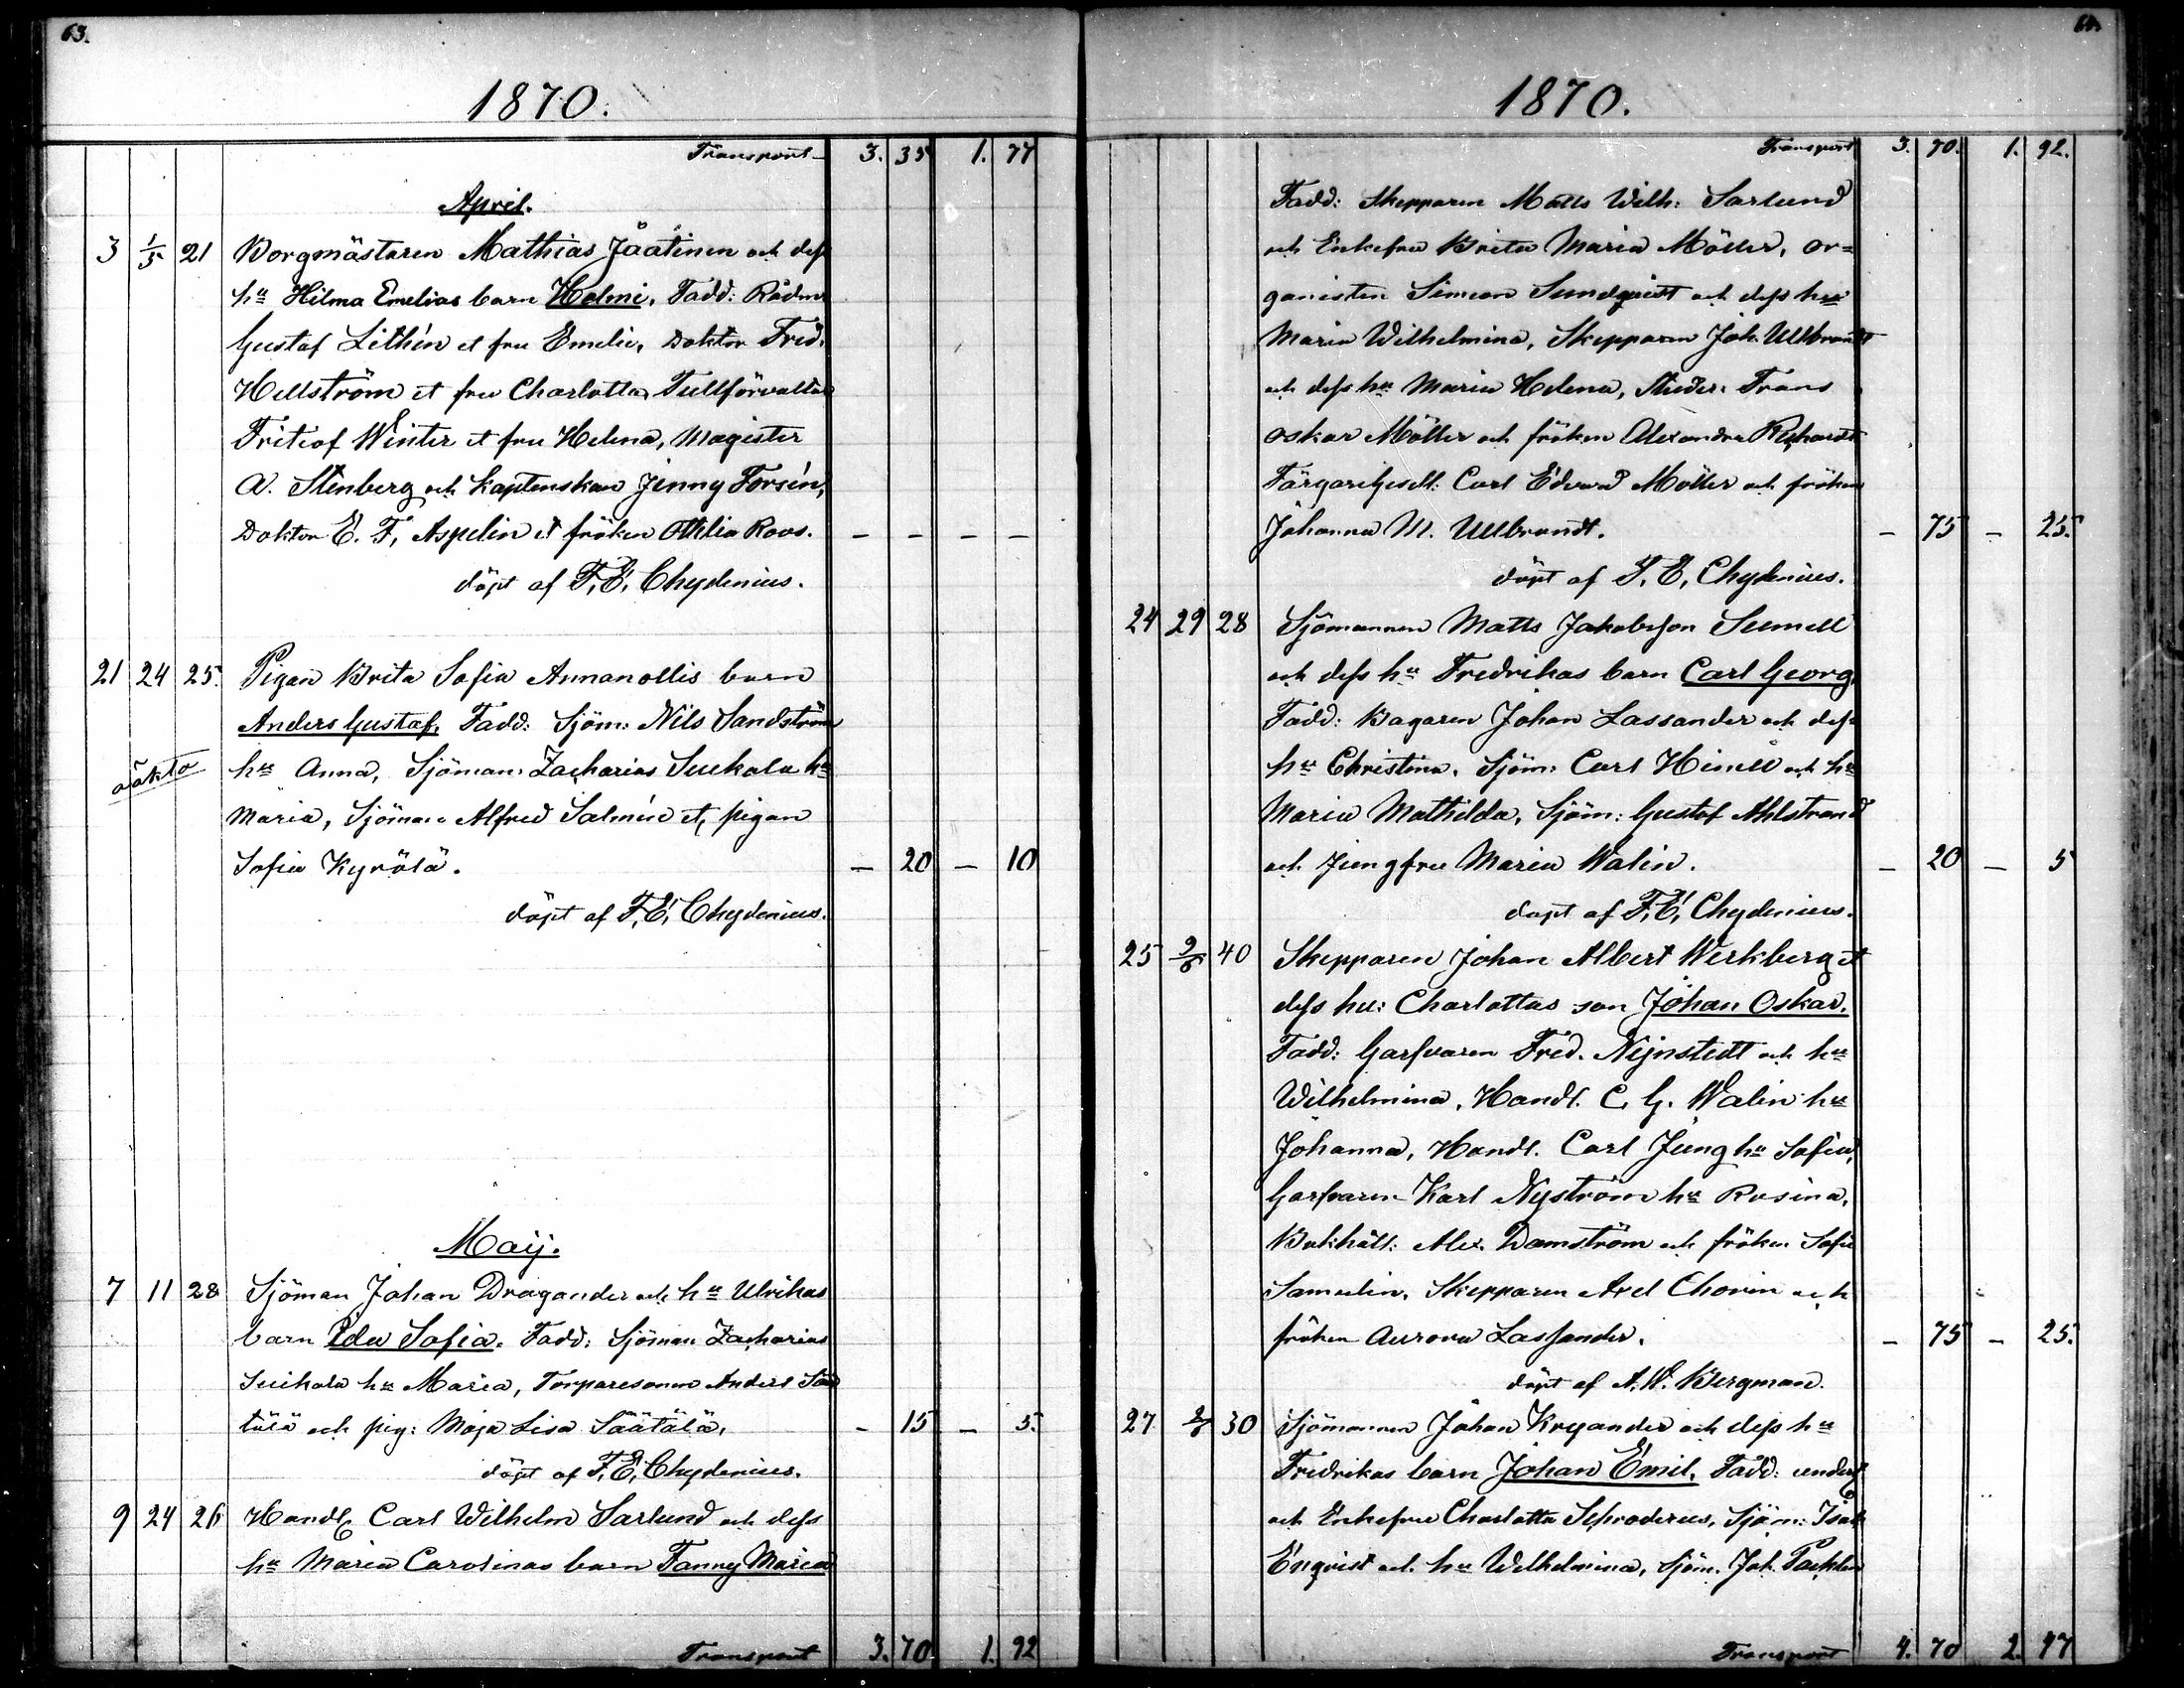 63.
1870.
Transport 3. 35 1. 77
April.
3 1/5 21 Borgmästaren Mathias Jäätinen och dess
hu Hilma Emelias barn Helmi, Fadd: Rådm
Gustaf Lithén et fru Emelie, Doktor Fred.
Hellström et fru Charlotta, Tullförvaltar
Friteof Winter et fru Helena, Magister
A. Stenberg och Kaptenskan Jenny Forsén,
Doktor E. F. Aspelin et fröken Othilia Roos. – – – –
döpt af F. E. Chydenius.
21 24 25. Pigan Brita Sofia Annanollis barn
Anders Gustaf, Fadd: Sjöm: Nils Sandström
oäkta hu Anna, Sjöman: Zacharias Suikala hu
Maria, Sjöman Alfred Salmén et pigan
Sofia Kyrölä. – 20 – 10
döpt af F. E. Chydenius.
Maij.
7 11 28 Sjöman Johan Dragander och hu Ulrikas
barn Ida Sofia. Fadd: Sjöman Zacharias
Suikala hu Maria, Torparesonen Anders Sää
tälä och pig: Maja Lisa Säätälä. – 15 – 5.
döpt af F. E. Chydenius.
9 24 26 Handl Carl Wilhelm Sarlund och dess
hu Maria Carolinas barn Fanny Maria
Transport 3. 70 1. 92
64.
1870.
Transport 3. 70. 1. 92.
Fadd: Skepparen Matts Wilh: Sarlund
och Enkefru Brita Maria Möller, or=
ganisten Simeon Sundqvist och dess hu
Maria Wilhelmina, Skepparen Joh. Ullbrandt
och dess hu Maria Helena, Studer: Frans
Oskar Möller och fröken Alexandra Reichardt
Färgaregesell: Carl Edvard Möller och fröken
Johanna M. Ullbrandt. – 75 – 25.
döpt af F. E. Chydenius.
24 29 28 Sjömannen Matts Jakobsson Sumell
och dess hu Fredrikas barn Carl Georg,
Fadd: Bagaren Johan Lassander och dess
hu Christina, Sjöm: Carl Himell och hu
Maria Mathilda, Sjöm: Gustaf Ahlstrand
och Jungfru Maria Walin. – 20 – 5
döpt af F. E. Chydenius.
25 2/6 40 Skepparen Johan Albert Werkberg et
dess hu: Charlottas son Johan Oskar.
Fadd: Garfvaren Fred. Nijnstedt och hu
Wilhelmina, Handl. C. G. Walin hu
Johanna, Handl. Carl Jung hu Sofia,
Garfvaren Karl Nyström hu Rosina,
Bokhåll: Alex. Damström och fröken Sofie
Samulin, Skepparen Axel Chorin och
fröken Aurora Lassander. – 75 – 25.
döpt af A. W. Bergman.
27 2/6 30 Sjömannen Johan Kryander och dess hu
Fredrikas barn Johan Emil, Fadd:
och Enkefru Charlotta Schroderus, Sjöm: Isak
Enqvist och hu Wilhelmina, Sjöm. Joh.
Transport 4. 70 2. 47